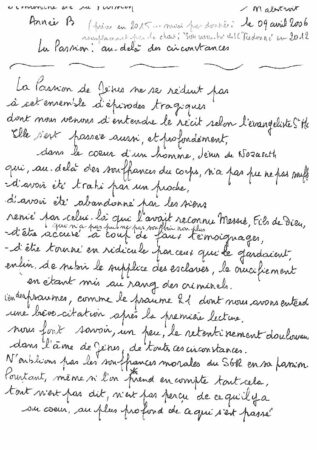 Dimanche de la Passion Malestroit
Année B (prévu en 2015 et mais pas donnée; le 09 avril 2006
remplacement par le chant: en 2012
La Passion: au-delà des circonstances
La Passion de Jésus ne se réduit pas
à cet ensemble d'épisodes tragiques
dont nous venons d'entendre le récit selon l'évangéliste St Mc
Elle s'est passée aussi, et profondément,
dans le coeur d'un homme, Jésus de Nazareth
qui, au-delà des souffrances du corps, n'a pas pu ne pas souffr
d'avoir été trahi par un proche,
d'avoir été abandonné par les siens
renié par celui-là que l'avait reconnu Messie, Fils de Dieu,
qui n'a pas pu ne pas souffrir non plus
-d'être accusé à coup de faux témoignages,
-d'être tourné en ridicule par ceux qui le gardaient,
enfin de subir le supplice des esclaves, le crucifiement
en étant mis au rang des criminels.
Les psaumes, comme le psaume 21 dont nous avons entend
une brève citation après la première lecture,
nous font savoir, un peu, le retentissement douloureux
dans l'âme de Jésus, de toutes ces circonstances.
N'oublions pas les souffrances morales du SGR en sa passion.
Pourtant, même si l'on prend en compte tout cela,
tout n'est pas dit, n'est pas perçu de ce qu'il y a
au coeur, au plus profond de ce qui s'est passé